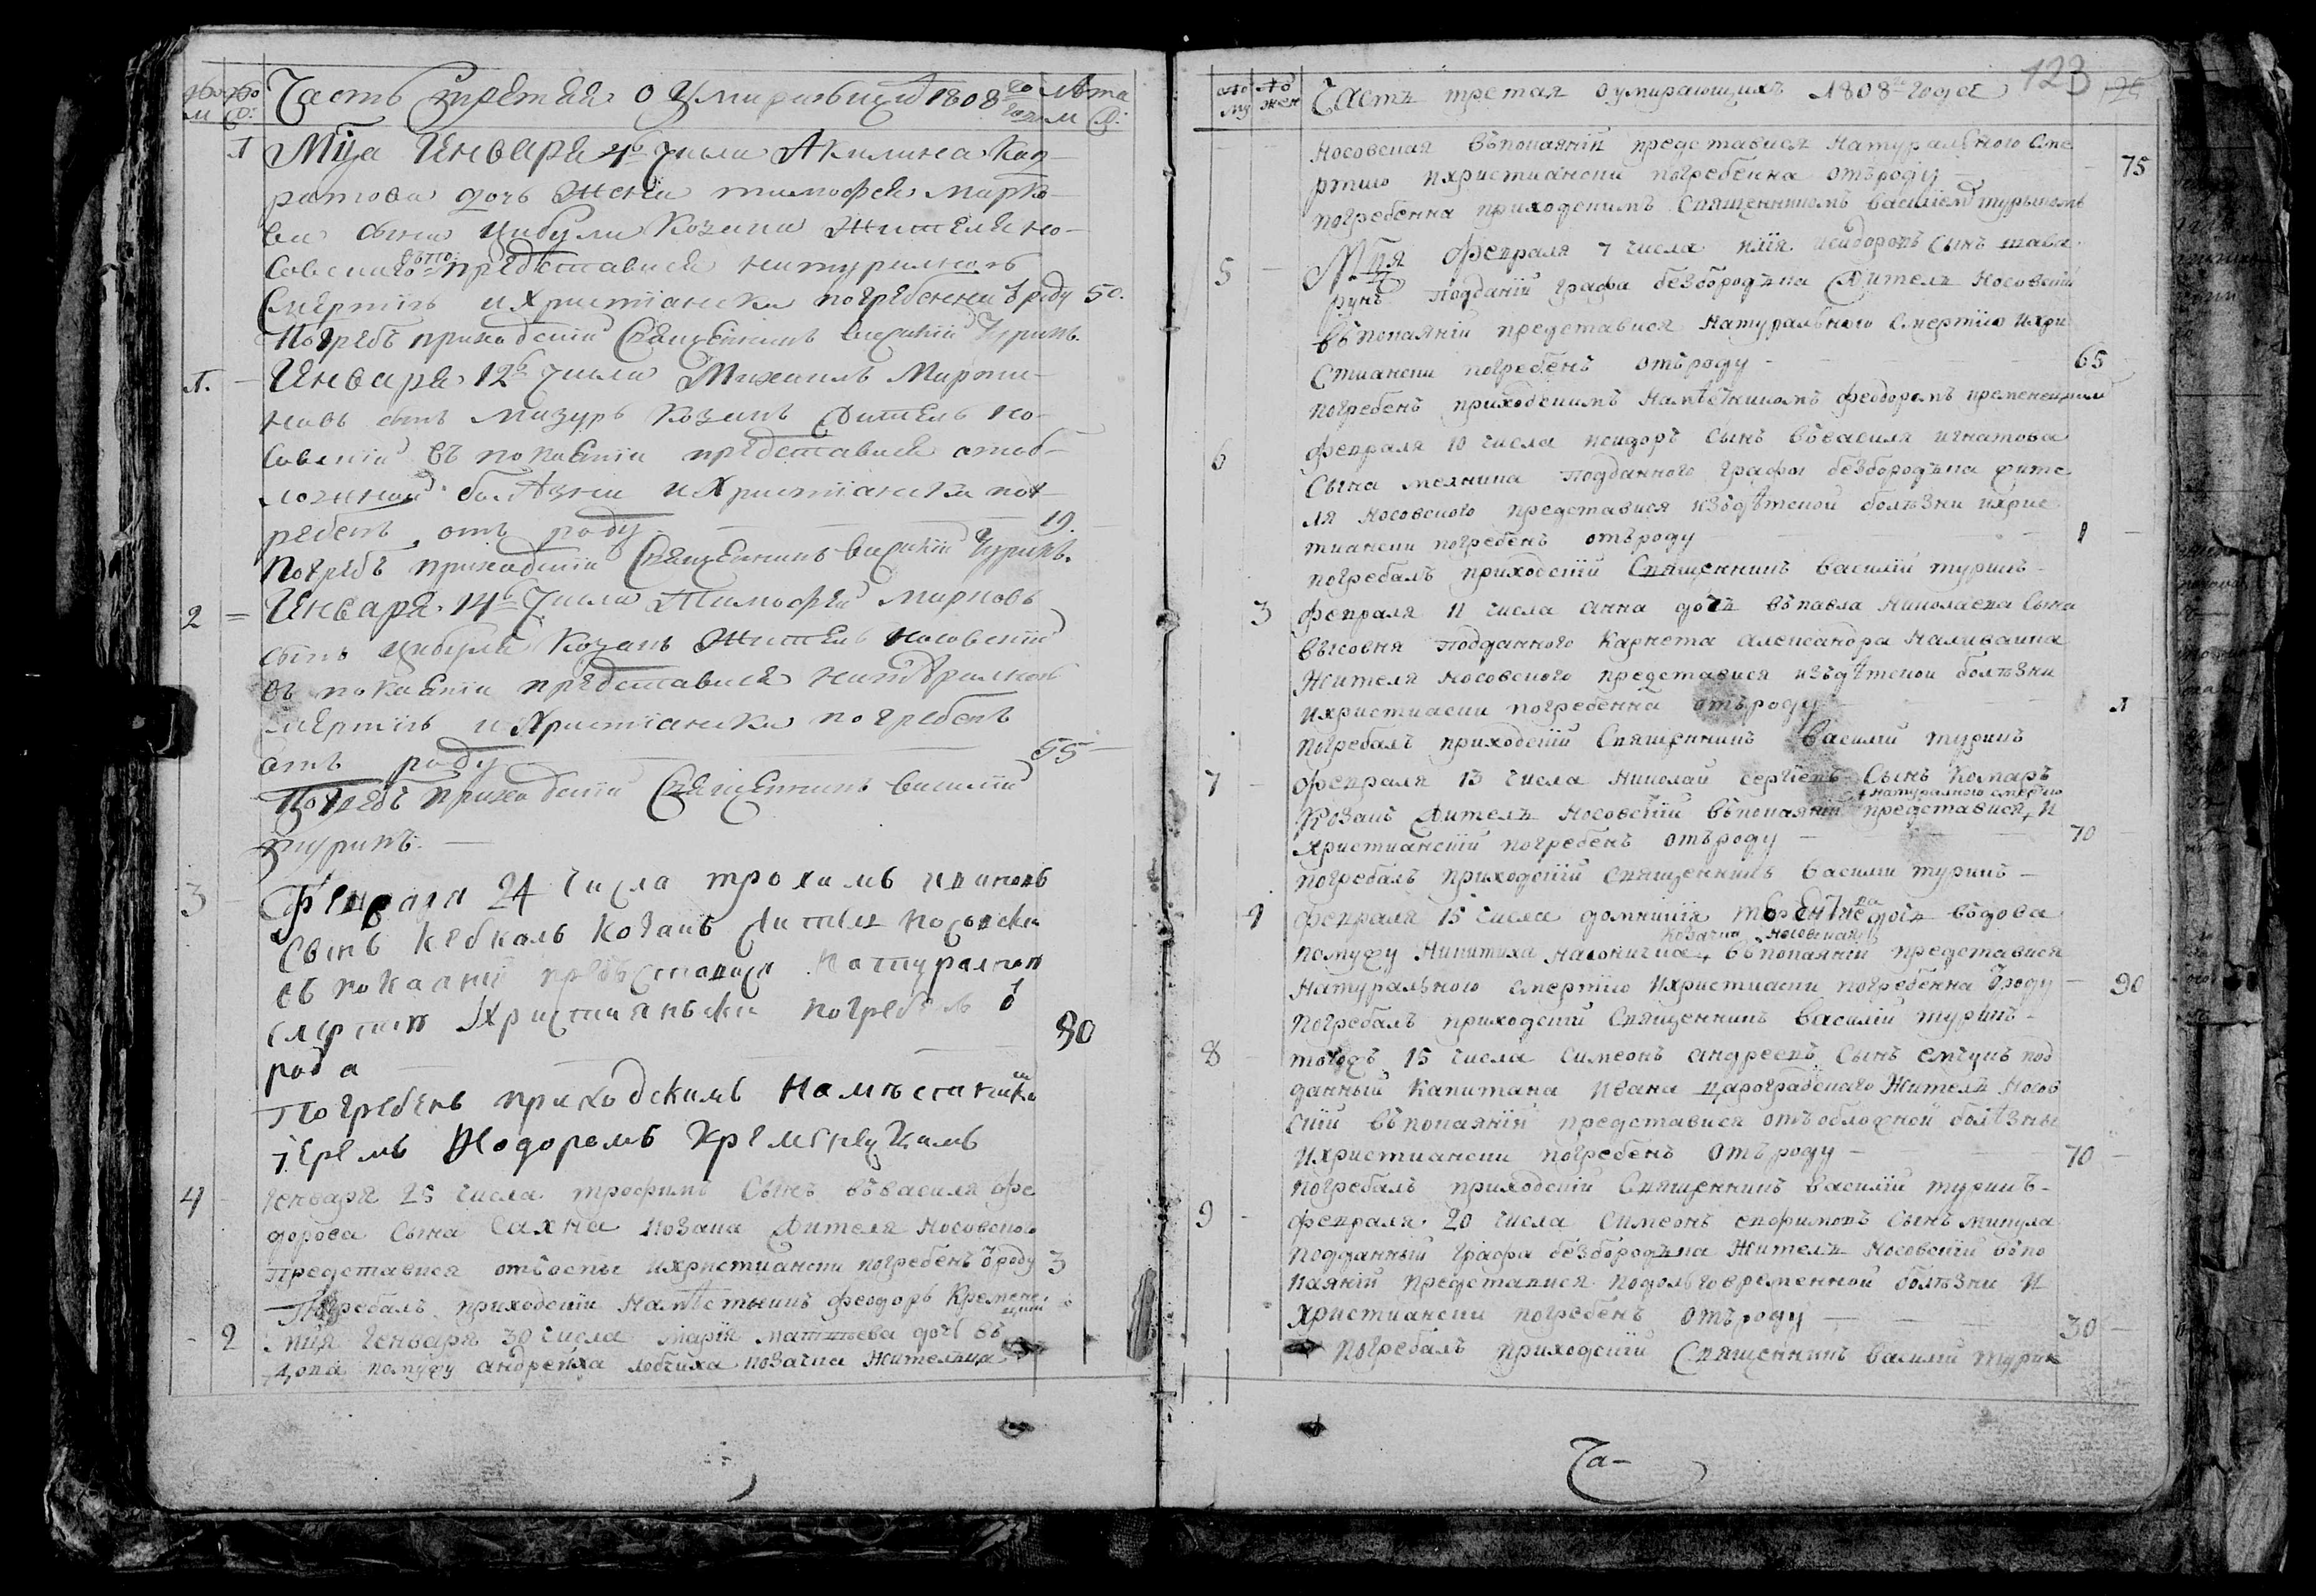 Часть Третья О Умирающих 1808 го года Лета
м ж м ж
1 Мца Января 4 числа Акилина Кон-
ратова дочь Жена тимофея Марко-
ва сына Цибули Козака Жителя но-
совского представися натуралною
Смертию и Християнски погребенна роду 50.
Погребъ приходский Священникъ василий Туринъ.
1. Января 12 числа Михаилъ Мироно-
новъ сынъ Мизуръ Козакъ Житель но-
совский въ покаянии представися отъ об-
ложной болѣзни и Християнски пог-
ребенъ отъ роду 19.
Погребъ приходский Священникъ василий Туринъ.
2 Января 14 числа Тимофей Марковъ
сынъ цибуля Козакъ Житель носовский
въ покаянии представися натуралною
смертию и Християнски погребенъ
отъ роду 55
Погребъ приходский Священникъ василий
туринъ.
3 24 числа трохимъ ивановъ
Сынъ Козакъ Житель носовски
въ покаяний представися натуралною
смертию Ихристияньски погребенъ
рода 80
Погребенъ приходскимъ Намѣстникомъ
Иеремъ Феодоромъ Кременецкимъ
4 Генваря 25 числа трофимъ Сынъ въ василя фе
дорова Сына Сахна козака Жителя Носовского
представися отъ воспы Ихристиански погребенъ роду 3
Погребалъ приходский Намѣстникъ феодоръ Кременецкий
2 Мця Генваря 30 числа Мария Матвѣева дочь въ
дова по мужу андрейха козачка Жителка
Часть третая оумирающихъ 1808 года 123
му жен
носовская въпокаянии представися натуралного сме
ртию ихристиански погребенна отъроду 75
погребенна приходскимъ Священникомъ василиемъ турыномъ
5 Мця февраля 7 числа исидоровъ Сынъ
подданий графа безбородька Житель Носовский
въпокаянии представися натуралного смертию ихри
стиански погребенъ отъроду 65
погребенъ приходскимъ Намѣстникомъ феодоромъ кременецкимъ
6 февраля 10 числа исидоръ Сынъ въвасиля игнатова
Сына мелника подданного графа безбородька жите
ля носовского представися изъдѣтской болѣзни ихрис
тиански погребенъ отъроду 1
погребалъ приходский Священникъ василий туринъ
3 февраля 11 числа анна дочь въпавла николаева Сына
подданного Карнета александра Наливайка
Жителя носовского представися изъдѣтской болѣзни
ихристиаски погребенна отъроду 1
погребалъ приходский Священникъ василий туринъ
7 февраля 13 числа николай сергиевъ Сынъ Комаръ
натурального смертию
Козакъ Житель Носовский въпокаянии представися и
христианский погребенъ отъроду 70
погребалъ приходский Священникъ василий туринъ
4 февраля 15 числа домникия терентиева дочь въдова
козачка носовская
помужу Никитиха въпокаянии представися
натурального смертию ихристиаски погребенна роду 90
погребалъ приходский Священникъ василий туринъ
8 тогожъ 15 числа Симеонъ андреевъ Сынъ под
данный Капитана ивана Цароградского Житель носов
ский въпокаянии представися отъобложной болѣзны
ихристиански погребенъ отъроду 70
погребалъ приходский Священникъ василий туринъ
9 февраля 20 числа Симеонъ Сынъ микула
подданный графа безбородька Житель Носовский въпо
каянии представися подолговременной болѣзни и
христиански погребенъ отъроду 30
погребалъ приходский Священникъ василий турин
Ча-